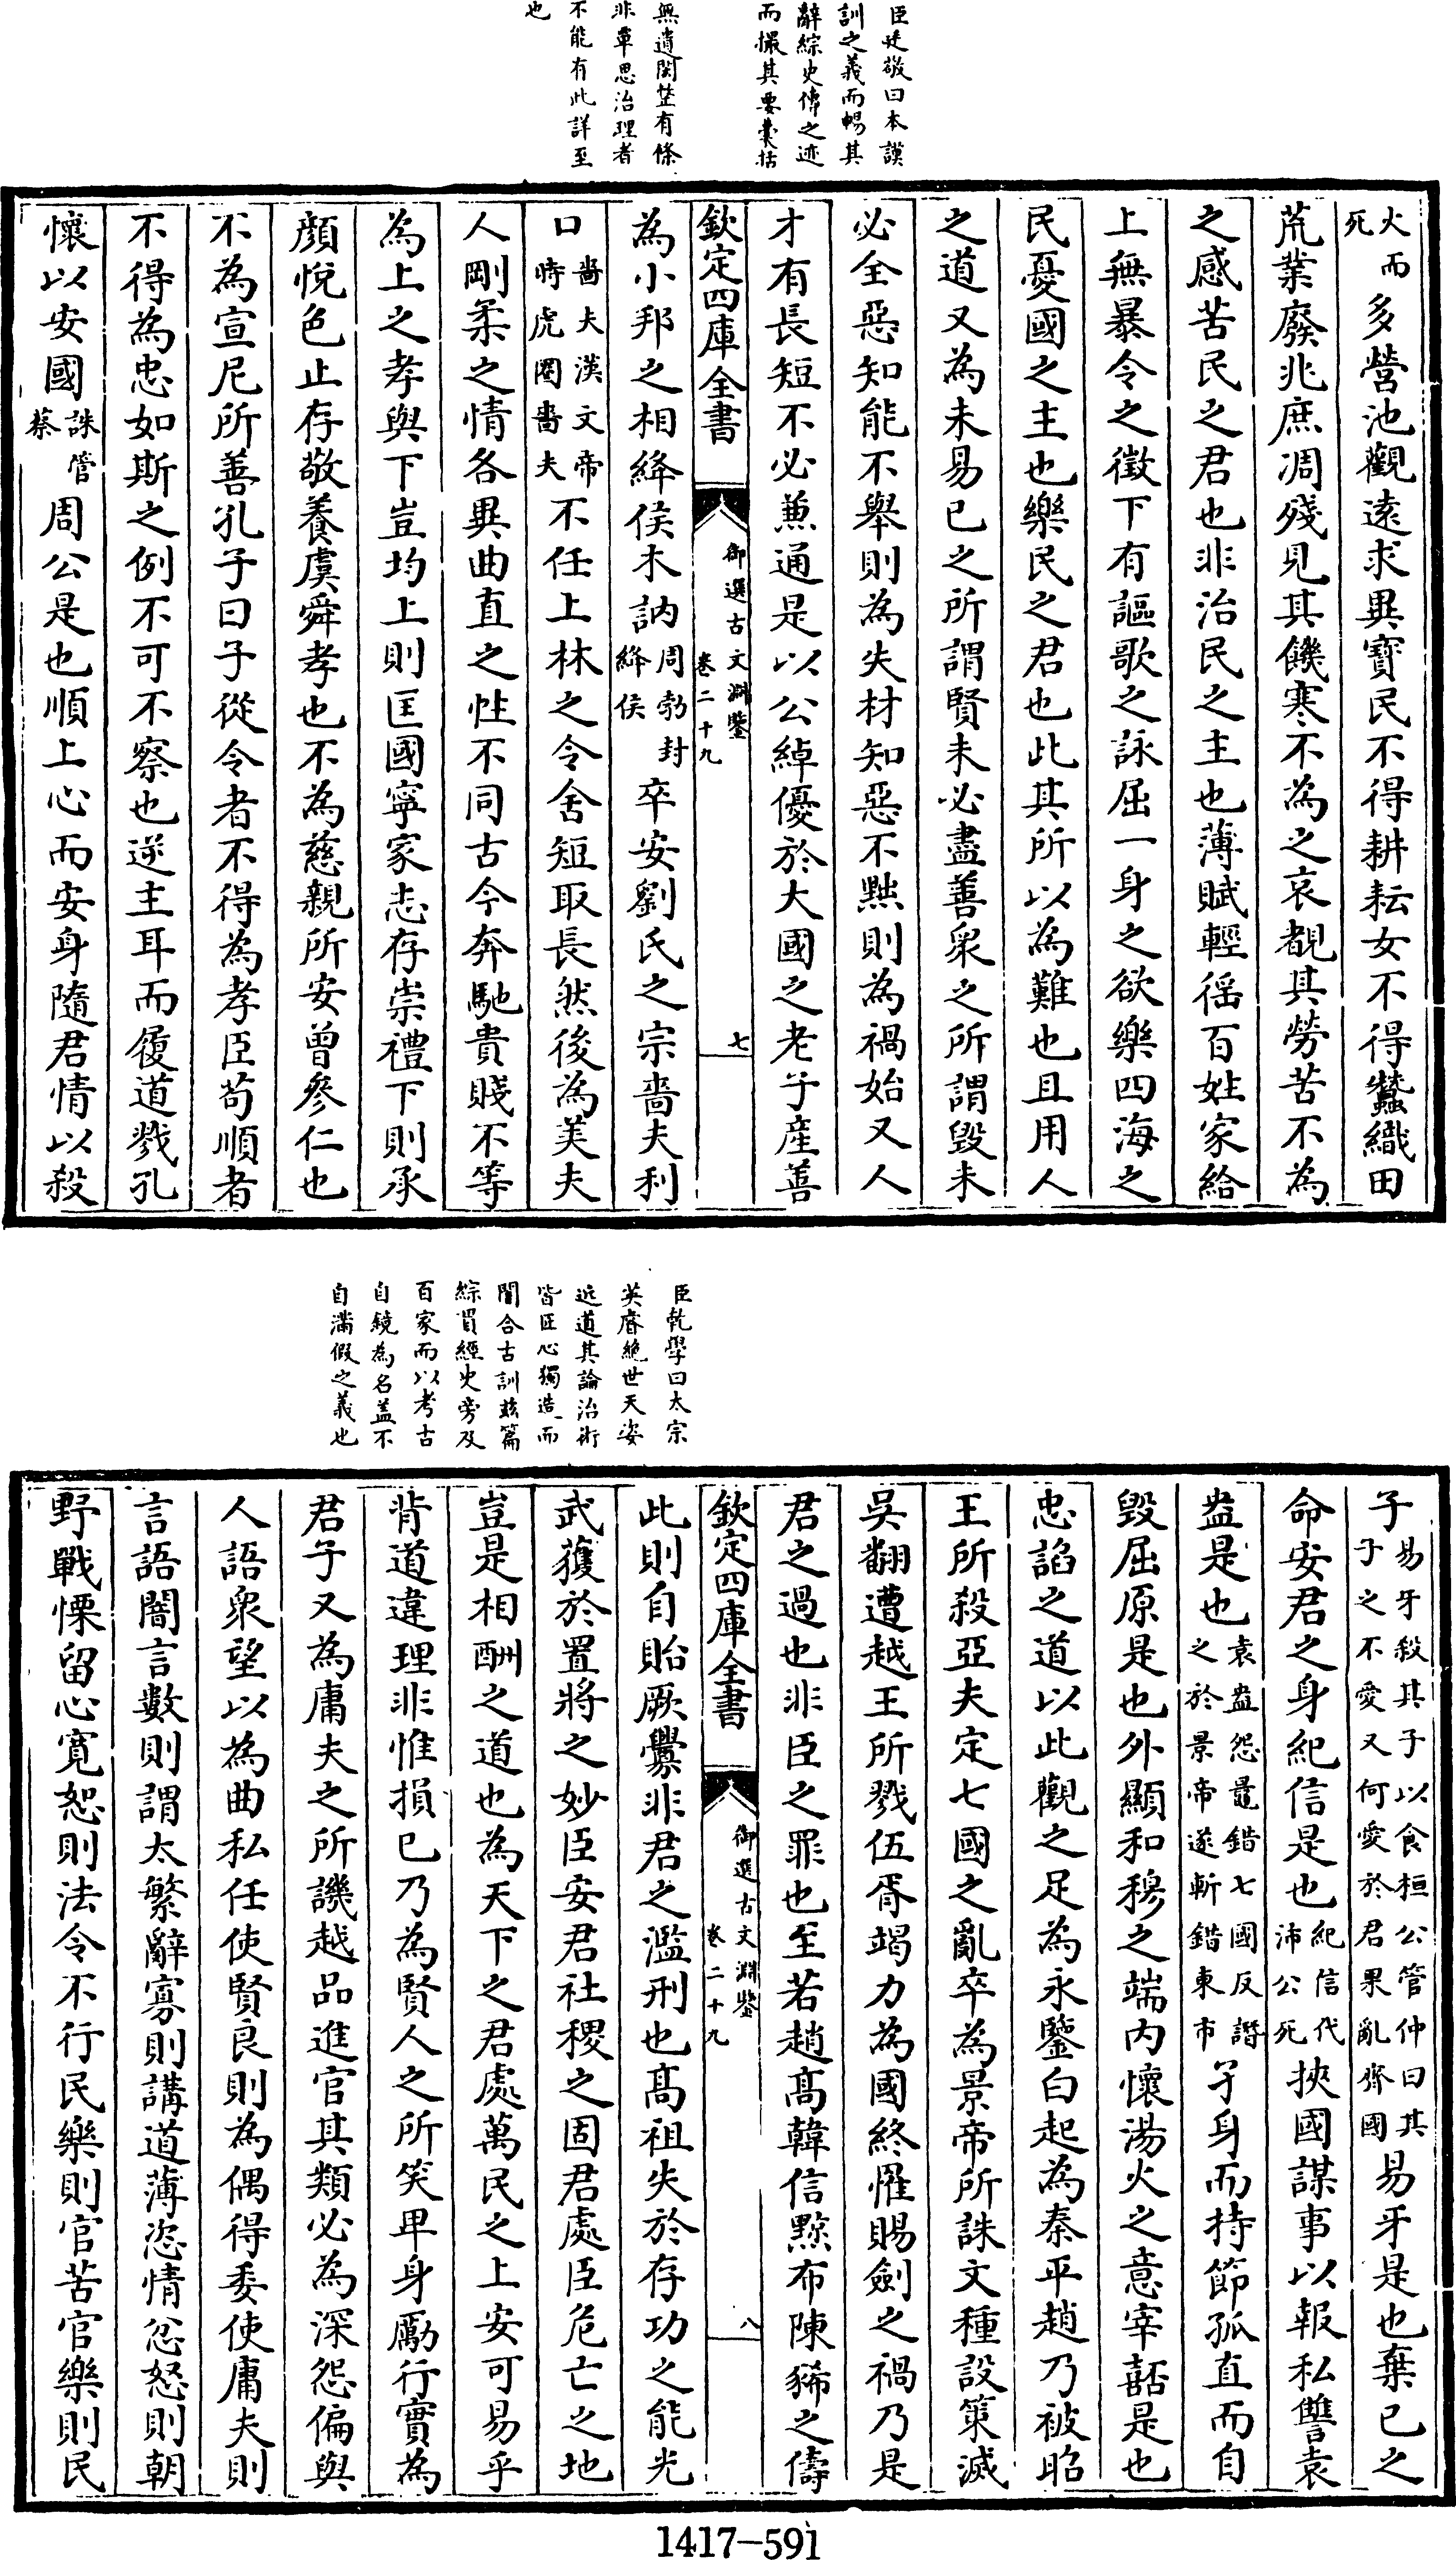 臣廷敬曰本謨
訓之義而暢其
辭綜史傳之迹
而撮其要囊括
無遺閎整有條
非覃思治理者
不能有此詳至
也
火而死多營池觀遠求異寶民不得耕耘女不得蠶織田
荒業廢兆庶凋殘見其饑寒不為之哀覩其勞苦不為
之感苦民之君也非治民之主也薄賦輕徭百姓家給
上無暴令之徵下有謳歌之詠屈一身之欲樂四海之
民憂國之主也樂民之君也此其所以為難也且用人
之道又為未易已之所謂賢未必盡善衆之所謂毀未
必全惡知能不舉則為失材知惡不黜則為禍始又人
才有長短不必兼通是以公綽優於大國之老子産善
欽定四庫全書
御選古文淵鑒
卷二十九
七
為小邦之相絳侯木訥周勃封絳侯卒安劉氏之宗嗇夫利
口嗇夫漢文帝時虎圈嗇夫不任上林之令舍短取長然後為美夫
人剛柔之情各異曲直之性不同古今奔馳貴賤不等
為上之孝與下豈均上則匡國寧家志存崇禮下則承
顔悅色止存敬養虞舜孝也不為慈親所安曾參仁也
不為宣尼所善孔子曰子從令者不得為孝臣苟順者
不得為忠如斯之例不可不察也逆主耳而履道戮孔
懷以安國誅管蔡周公是也順上心而安身隨君情以殺
臣乾學曰太宗
英睿絶世天姿
近道其論治術
皆匠心獨造而
闇合古訓兹篇
綜貫經史旁及
百家而以考古
自鏡為名盖不
自滿假之義也
子易牙殺其子以食桓公管仲曰其子之不愛又何愛於君果亂齊國易牙是也棄已之
命安君之身紀信是也紀信代沛公死挾國謀事以報私讐袁
盎是也袁盎怨鼂錯七國反譖之於景帝遂斬錯東市孑身而持節孤直而自
毀屈原是也外顯和穆之端内懷湯火之意宰嚭是也
忠諂之道以此觀之足為永鑒白起為秦平趙乃被昭
王所殺亞夫定七國之亂卒為景帝所誅文種設策滅
吳翻遭越王所戮伍胥竭力為國終罹賜劍之禍乃是
君之過也非臣之罪也至若趙高韓信黥布陳豨之儔
欽定四庫全書
御選古文淵鑒
卷二十九
八
此則自貽厥釁非君之濫刑也高祖失於存功之能光
武獲於置將之妙臣安君社稷之固君處臣危亡之地
豈是相酬之道也為天下之君處萬民之上安可易乎
背道違理非惟損已乃為賢人之所笑卑身勵行實為
君子又為庸夫之所譏越品進官其類必為深怨偏與
人語衆望以為曲私任使賢良則為偶得委使庸夫則
言語闇言數則謂太繁辭寡則講道薄恣情忿怒則朝
野戰慄留心寛恕則法令不行民樂則官苦官樂則民
1417-591